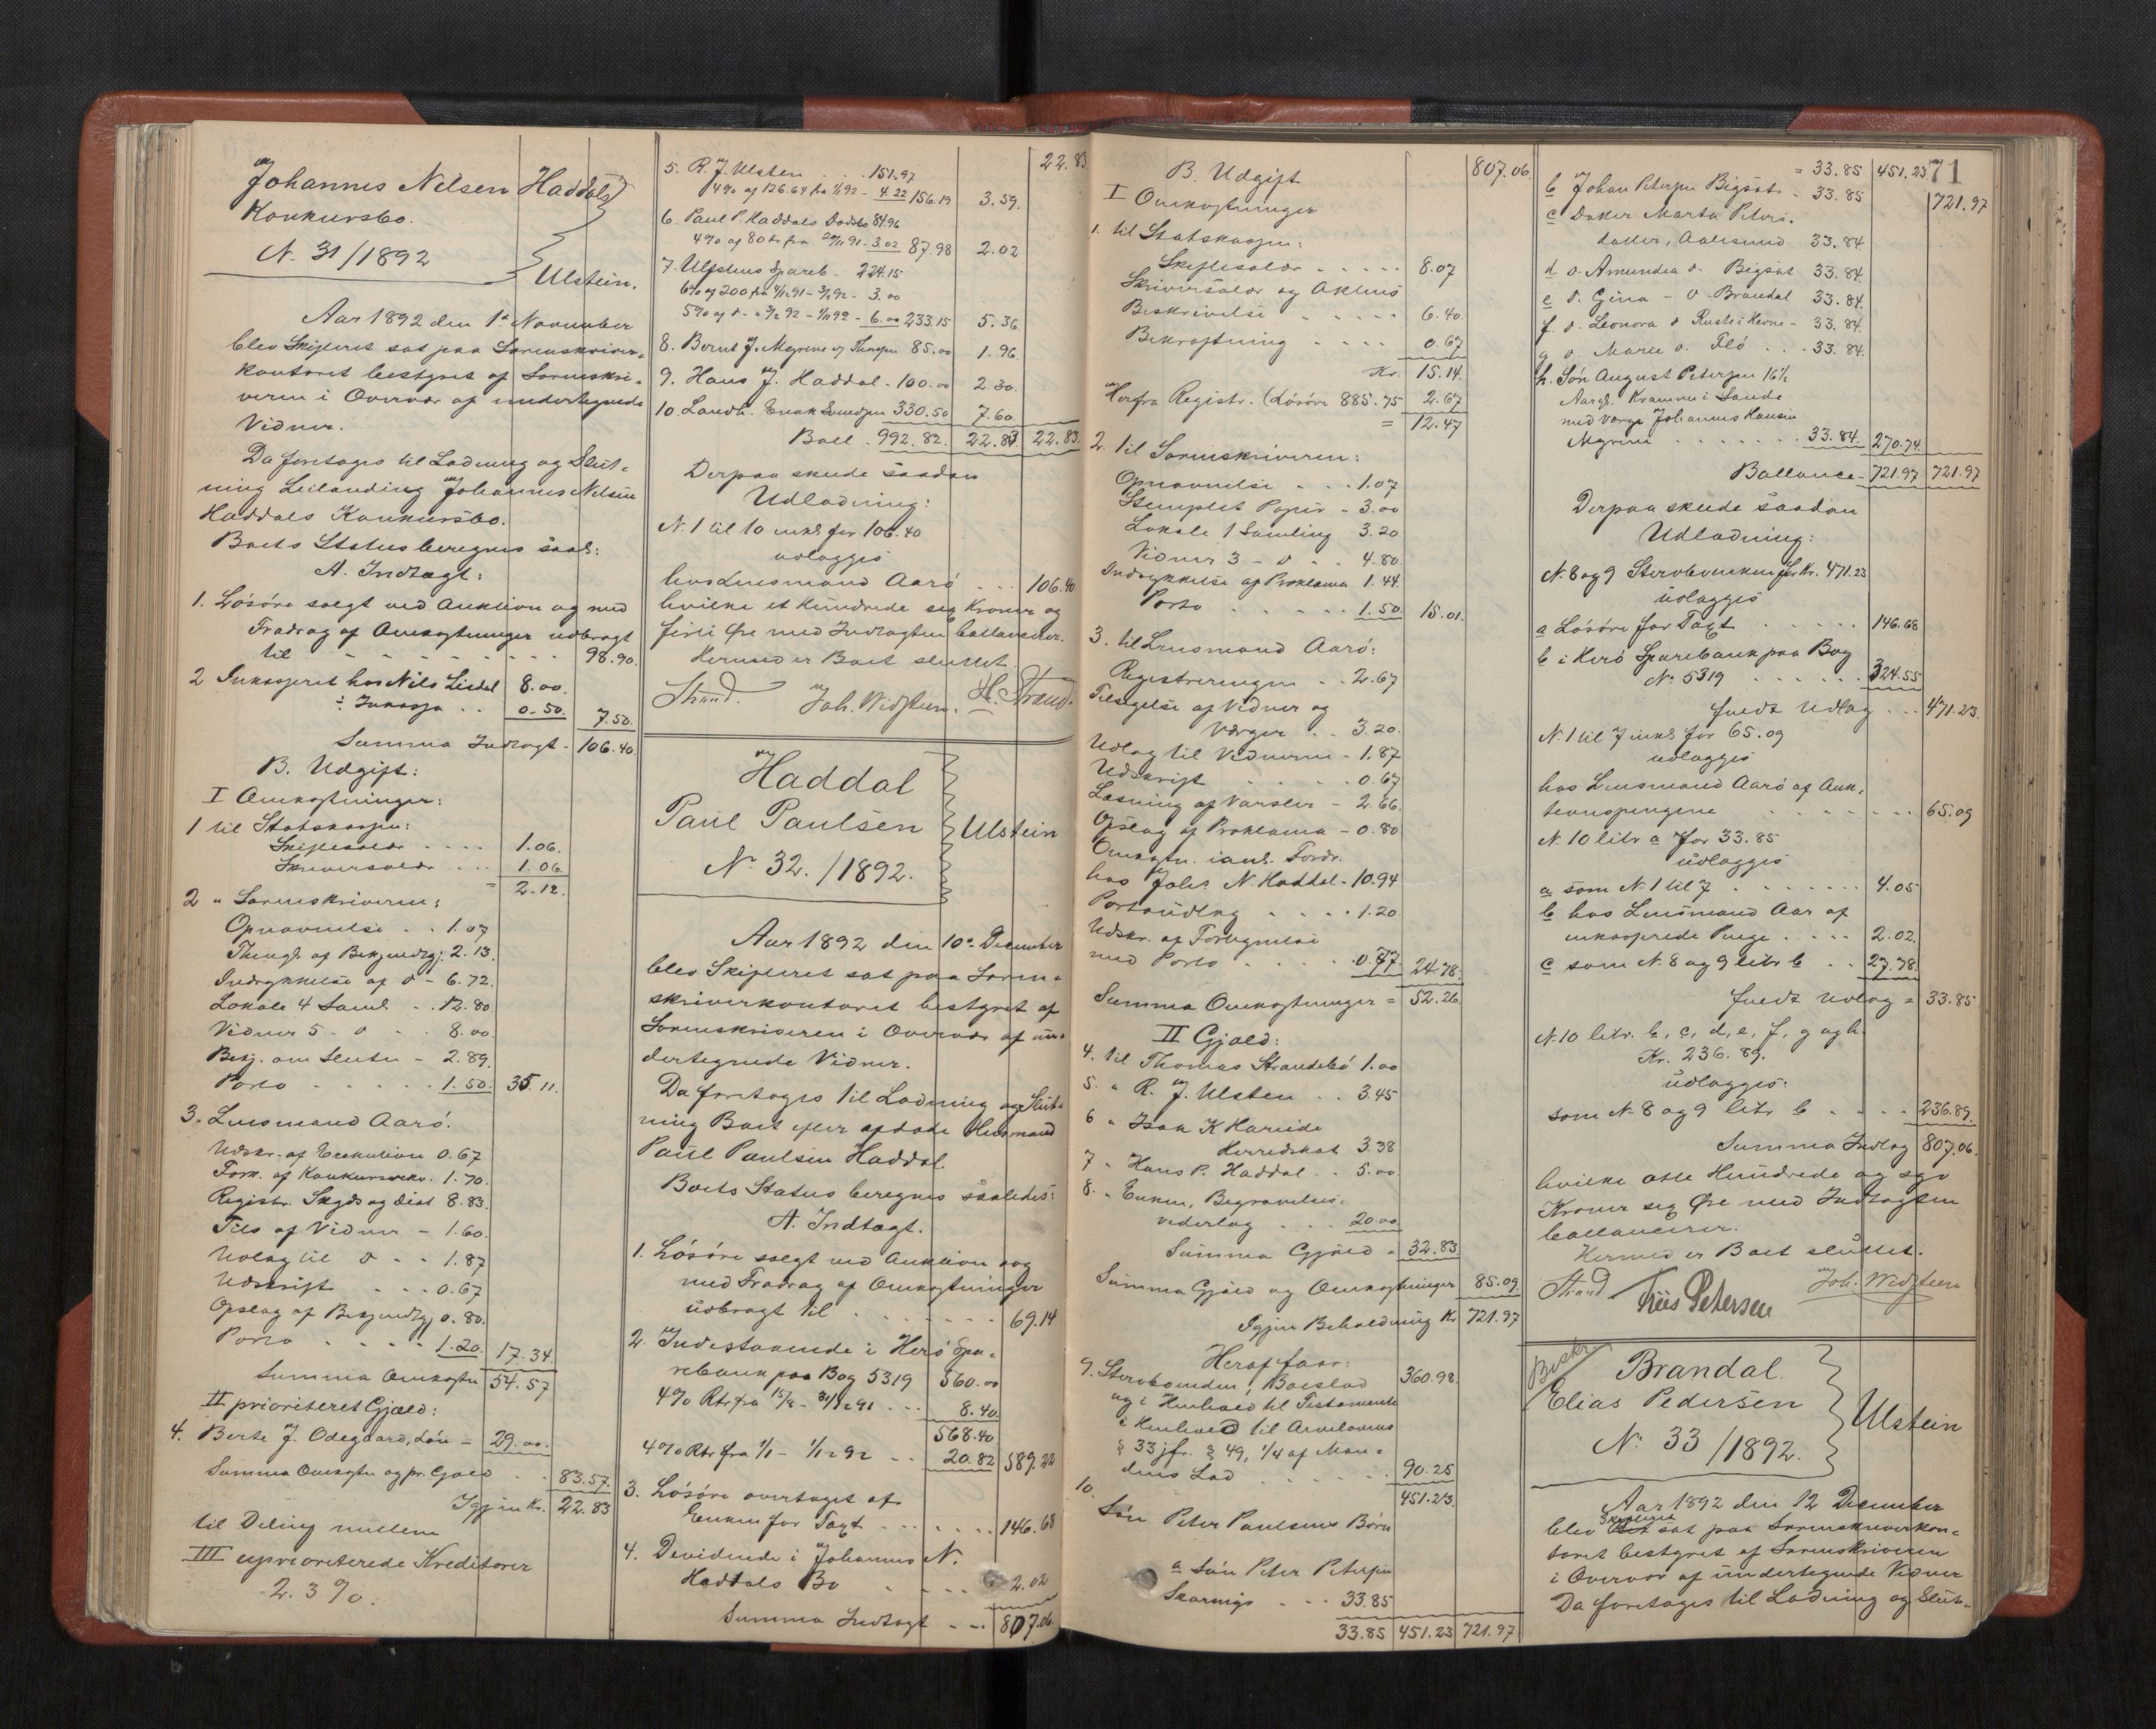 Johannes Nilsen Haddals
Konkursbo.
N. 31/1892
Ulstein.
Aar 1892 den 1ste November
blev Skifteret sat paa Sorenskriver-
kontoret bestyret af Sorenskri-
veren i Overvær af undertegnede
Vidner.
Da foretoges til Lodning og Slut-
ning Leilænding Johannes Nilsen
Haddals Konkursbo.
Boets Status beregnes saal:
A. Indtægt:
1. Løsøre solgt ved Auktion og med
Fradrag af Omkostninger udbragt
til - - - - - - - - - 98.90.
2 Inkasseret hos Nils Lisdal 8.00.
÷ Inkasso . . 0.50. 7.50.
Summa Indtægt - 106.40.
B. Udgift:
I Omkostninger:
1 til Statskassen:
Skiftesalær . . . . 1.06.
Skriversalær . . . 1.06.
= 2.12.
2 " Sorenskriveren:
Opnævnelse . . 1.07
Thingl. af Bekjendtgj. 2.13.
Indrykkelse af d - 6.72.
Lokale 4 Saml. - . 12.80
Vidner 5 - d - - 8.00.
Bekj. om Slutn - 2.89.
Porto . . . . . . 1.50. 35.11.
3. Lensmand Aarø.
Udskr. af Exekution 0.67
Fork. af Konkursværn. 1.70.
Registr. Skyds og diæt 8.83.
Tils af Vidner - 1.60.
Udlæg til d - - 1.87
Udskrift . . . 0.67
Opslag af Bekjendtgj 0.80.
Porto . . . . 1.20. 17.34.
Summa Omkostn 54.57
II prioriteret Gjæld:
4. Berte J. Ødegaard, Løn - 29.00.
Summa Omkostn og pr. Gjæld - - 83.57.
Igjen Kr. 22.83
til Deling mellem
III uprioriterede Kreditorer
2.3%.
22.83
5. R. J. Ulsten . . 151.97
4% af 126.64 fra 1/1 92 - 4.22 156.19 3.59.
6. Paul P. Haddals Dødsbo 84.96
4% af 80 kr fra 20/11 91 - 3.02 87.98 2.02
7. Ulstens Spareb. - 224.15
6% af 200 fra 4/12 91 - 3/2 92 - 3.00
5% af d - " 3/2 92 - 1/11 92 - 6.00 233.15 5.36.
8. Bernt J. Myrene og Thorsen 85.00 1.96.
9. Hans J. Haddal - 100.00 2.30.
10. Landh. Enok Svendsen 330.50 7.60.
Ball - 992.82. 22.83 22.83.
Derpaa skede saadan
Udlodning:
N. 1 til 10 inkl for 106.40
udlægges
hos Lensmand Aarø . . . 106.40.
hvilke et Hundrede sex Kroner og
firti Øre med Indtægten ballancerer.
Hermed er Boet sluttet.
Strand. Joh. Widsteen. H. Strand.
Haddal
Paul Paulsen
N. 32./1892.
Ulstein
Aar 1892 den 10de December
blev Skifteret sat paa Soren-
skriverkontoret bestyret af
Sorenskriveren i Overvær af un-
dertegnede Vidner.
Da foretoges til Lodning og Slut-
ning Boet efter afdøde Husmand
Paul Paulsen Haddal.
Boets Status beregnes saaledes:
A. Indtægt.
1. Løsøre solgt ved Auktion og
med Fradrag af Omkostninger
udbragt til . . . . . . . 69.14
2. Indestaaende i Herø Spa-
rebank paa Bog 5319 560.00
4% Rtr fra 15/8 - 31/12 91 . . . 8.40.
568.40
4% Rtr fra 1/1 - 1/12 92 . . 20.82 589.22
3. Løsøre overtaget af
Enken for Taxt . . . . . . . . 146.68
4. Devidende i Johannes N.
Haddals Bo . . . . . 2.02
Summa Indtægt - - - 807.06
B. Udgift 807.06.
I Omkostninger
1. til Statskassen:
Skiftesalær . . . . . 8.07
Skriversalær og Aktens
Beskrivelse . . . . . 6.40.
Bekræftning . . . . 0.67
Kr. 15.14.
Herfra Registr. (Løsøre 885.75 2.67
= 12.47
2 til Sorenskriveren:
Opnævnelse . . . 1.07
Stemplet Papir - 3.00
Lokale 1 Samling 3.20
Vidner 3 - d . . 4.80.
Indrykkelse af Proklama 1.44.
Porto . . . . . . 1.50. 15.01.
3. til Lensmand Aarø:
Registreringen . . 2.67
Tilsigelse af Vidner og
Værger . . 3.20.
Udlæg til Vidnerne - 1.87
Udskrift . . . . . 0.67
Læsning af Varsler - 2.66.
Opslag af Proklama - 0.80
Omkostn. ianl. Fordr.
hos Johs N. Haddal - 10.94
Portoudlæg . . . . 1.20.
Udskr. af Fortegnelse
med Porto . . . . . 0.77. 24.78.
Summa Omkostninger = 52.26.
II Gjæld:
4. til Thomas Strandebø 1.00
5. " R. J. Ulsten . . 3.45
6 " Isak K Hareide
Herredskat 3.38
7 " Hans P. Haddal . . 5.00.
8. " Enken, Begravelses-
vederlag . . . 20.00
Summa Gjæld - 32.83.
Summa Gjæld og Omkostninger 85.09
Igjen Beholdning Kr 721.97
Heraf faar:
9. Stervboenken, Boeslod 360.98.
og i Henhold til Testamente
i Henhold til Arvelovens
§ 33 jfr. § 49, 1/4 af Man-
dens Lod . . . . . . . 90.25
451.23.
10.
Søn Peter Paulsens Børn
a Søn Peter Petersen
Skarnigs . . . 33.85
33.85 451.23 721.97
71
= 33.85 451.23
721.97
b Johan Petersen Bigsæt - 33.85
c Datter Marta Peters-
datter, Aalesund 33.84.
d d. Amundea d. Bigsæt 33.84.
e d. Gina - d. Brandal 33.84.
f. d. Leonora d Rusti i Herøe - 33.84.
g d. Marie d. Flø . . . 33.84.
h. Søn August Petersen 16½
Aargl. Kramme i Sande
med Værge Johannes Hansen
Myrene . . . . . . . . 33.84. 270.74.
Ballance - 721.97 721.97
Derpaa skede saadan
Udlodning:
N. 8 og 9 Stervboenken for Kr. 471.23
udlægges
a Løsøre for Taxt . . . . . 146.68
b i Herø Sparebank paa Bog
No 5319 . . . . . . 324.55
fuldt Udlæg . . . 471.23.
N. 1 til 7 inkl for 65.09
udlægges
hos Lensmand Aarø af Auk-
tionspengene . . . . . . . . 65.09
N. 10 litr a for 33.85
udlægges
a som N. 1 til 7 . . . . . . . 4.05
b hos Lensmand Aar af
inkasserede Penge . . . . 2.02.
c som N. 8 og 9 litr b . . 27.78.
fuldt Udlæg = 33.85
N. 10 litr. b, c, d, e, f, g og h.
Kr. 236.89.
udlægges:
som N. 8 og 9 litr b . . . . 236.89.
Summa Indlæg 807.06.
hvilke otte Hundrede og syv
Kroner sex Øre med Indtægten
ballancerer.
Hermed er Boet sluttet.
Strand Friis Petersen Joh. Widsteen
Beskr.
Brandal.
Elias Pedersen
N. 33/1892.
Ulstein
Aar 1892 den 12 December
blev Skifteret sat paa Sorenskriverkon-
toret bestyret af Sorenskriveren
i Overvær af undertegnede Vidner
Da foretoges til Lodning og Slut-